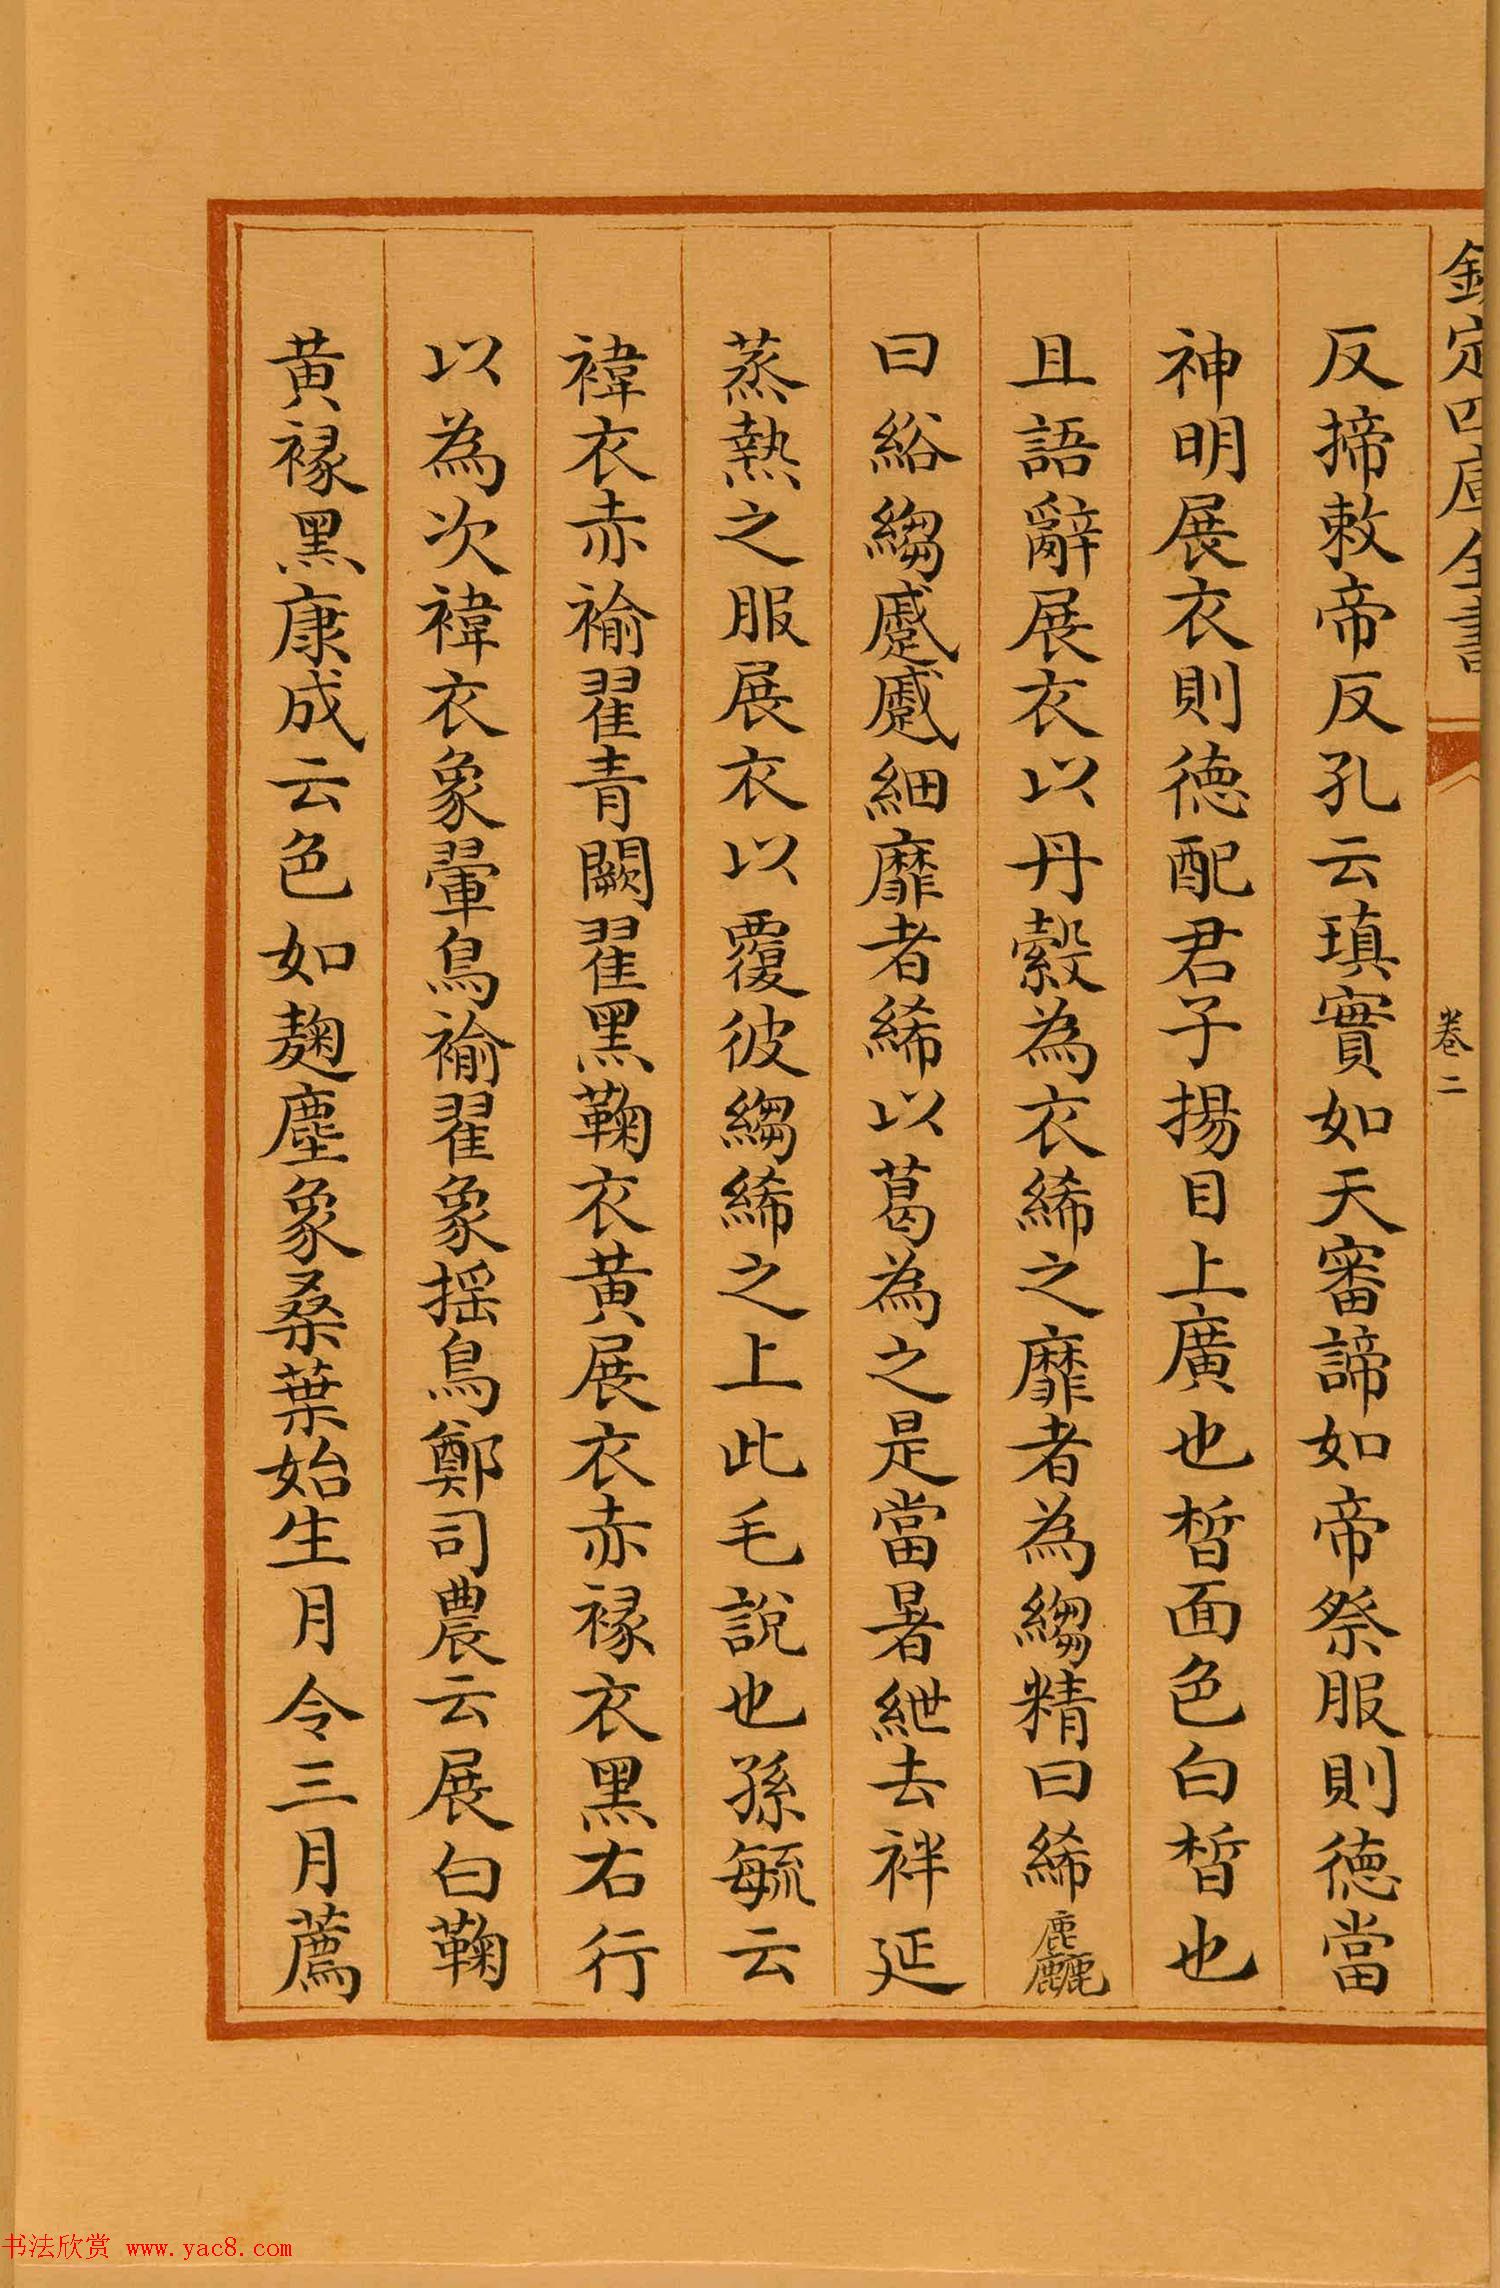 欽定四庫全書
卷二
反揥敕帝反孔云瑱實如天審諦如帝祭服則德當
神明展衣則德配君子揚目上廣也皙面色白皙也
且語辭展衣以丹縠為衣絺之靡者為縐精曰絺麤
曰綌縐蹙蹙細靡者絺以葛為之是當暑紲去袢延
蒸熱之服展衣以覆彼縐絺之上此毛說也孫毓云
褘衣赤褕翟青闕翟黑鞠衣黃展衣赤褖衣黑右行
以為次褘衣象翬鳥褕翟象搖鳥鄭司農云展白鞠
黃褖黑康成云色如麴塵象桑葉始生月令三月薦
书法欣赏 www.yac8.com